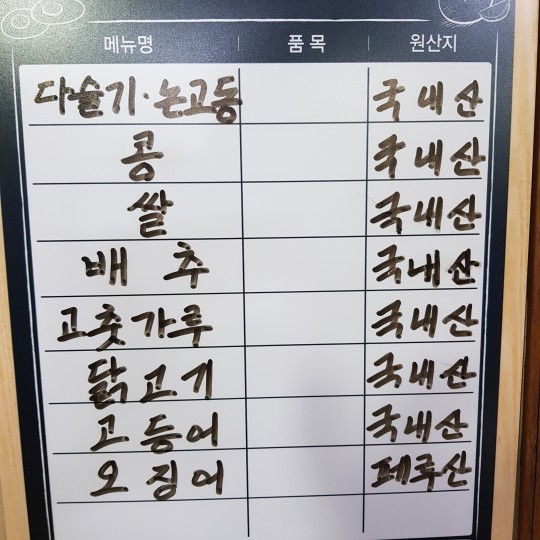 메뉴명 품목 원산지
다슬기·논고동 국내산
콩 국내산
쌀 국내산
배추 국내산
고춧가루 국내산
닭고기 국내산
고등어 국내산
오징어 페루산